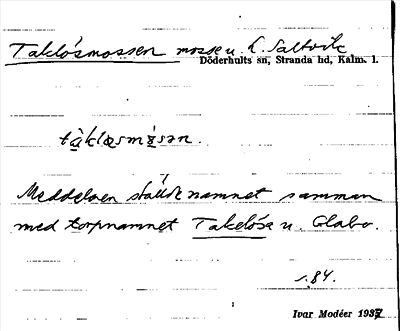 Taklösmossen mosse u. L. Saltvik
Döderhults sn, Stranda hd, Kalm. l.
tàkləsmɷ̀sən.
Meddelaren ställde namnet samman
med torpnamnet Takelösa u. Glabo.
s. 84.
Ivar Modéer 1937